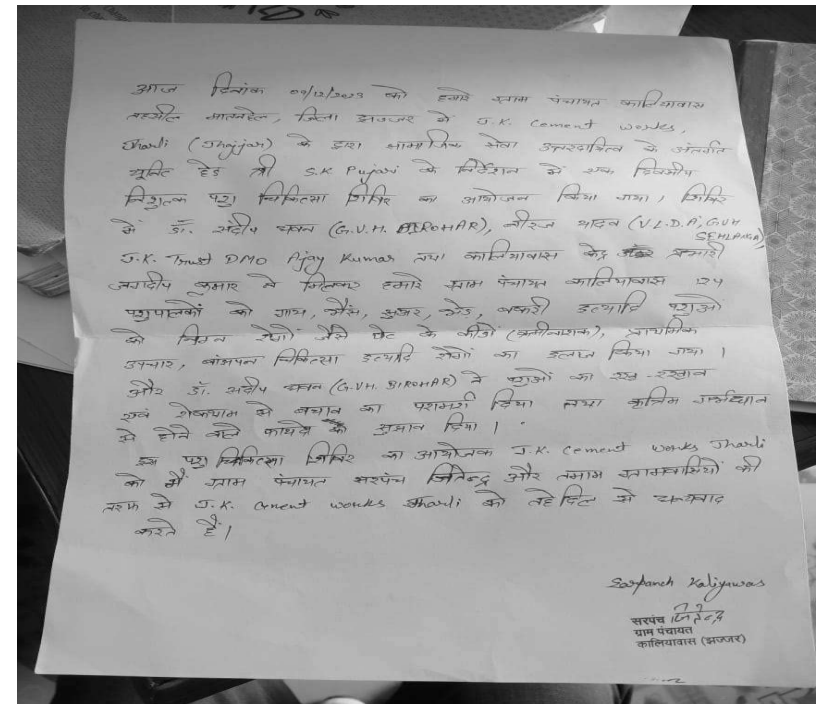 आज दिनांक 09/12/2023 को हमारे ग्राम पंचायत कालियावास
तहसील मातनहेल, जिला झज्जर में J.K. Cement works,
Jharli (Jhajjar) के द्वारा सामाजिक सेवा उत्तरदायित्व के अंतर्गत
यूनिट हेड श्री S.K Pujari के निर्देशन में एक दिवसीय
निशुल्क पशु चिकित्सा शिविर का आयोजन किया गया, शिविर
में डॉ. संदीप धवन (G.V.H. BIROHAR), नीरज यादव (V.L.D.A, GVH
SEHLANGA)
J.K. Trust DMO Ajay Kumar तथा कालियावास केंद्र प्रभारी
जगदीप कुमार ने मिलकर हमारे ग्राम पंचायत कालियावास 24
पशुपालकों को गाय, भैंस, सुअर, भेड, बकरी इत्यादि पशुओ
को विभिन्न रोगों जैसे पेट के कीडों (कृमीनाशक), प्राथमिक
उपचार, बांझपन चिकित्सा इत्यादि रोगों का इलाज किया गया।
और डॉ. संदीप धवन (G.V.H. BIROHAR) ने पशुओं का रख-रखाव
एवं रोकथाम से बचाव का परामर्श दिया तथा कृत्रिम गर्भाधान
से होने वाले फायदे के सुझाव दिया।
इस पशु चिकित्सा शिविर का आयोजक J.K. Cement works Jharli
को मैं ग्राम पंचायत सरपंच जितेन्द्र और तमाम ग्रामवासियों की
तरफ से J.K. Cement works Jharli को तहे दिल से धन्यवाद
करते हैं।
Sarpanch Kaliyawas
सरपंच जितेन्द्र
ग्राम पंचायत
कालियावास (झज्जर)